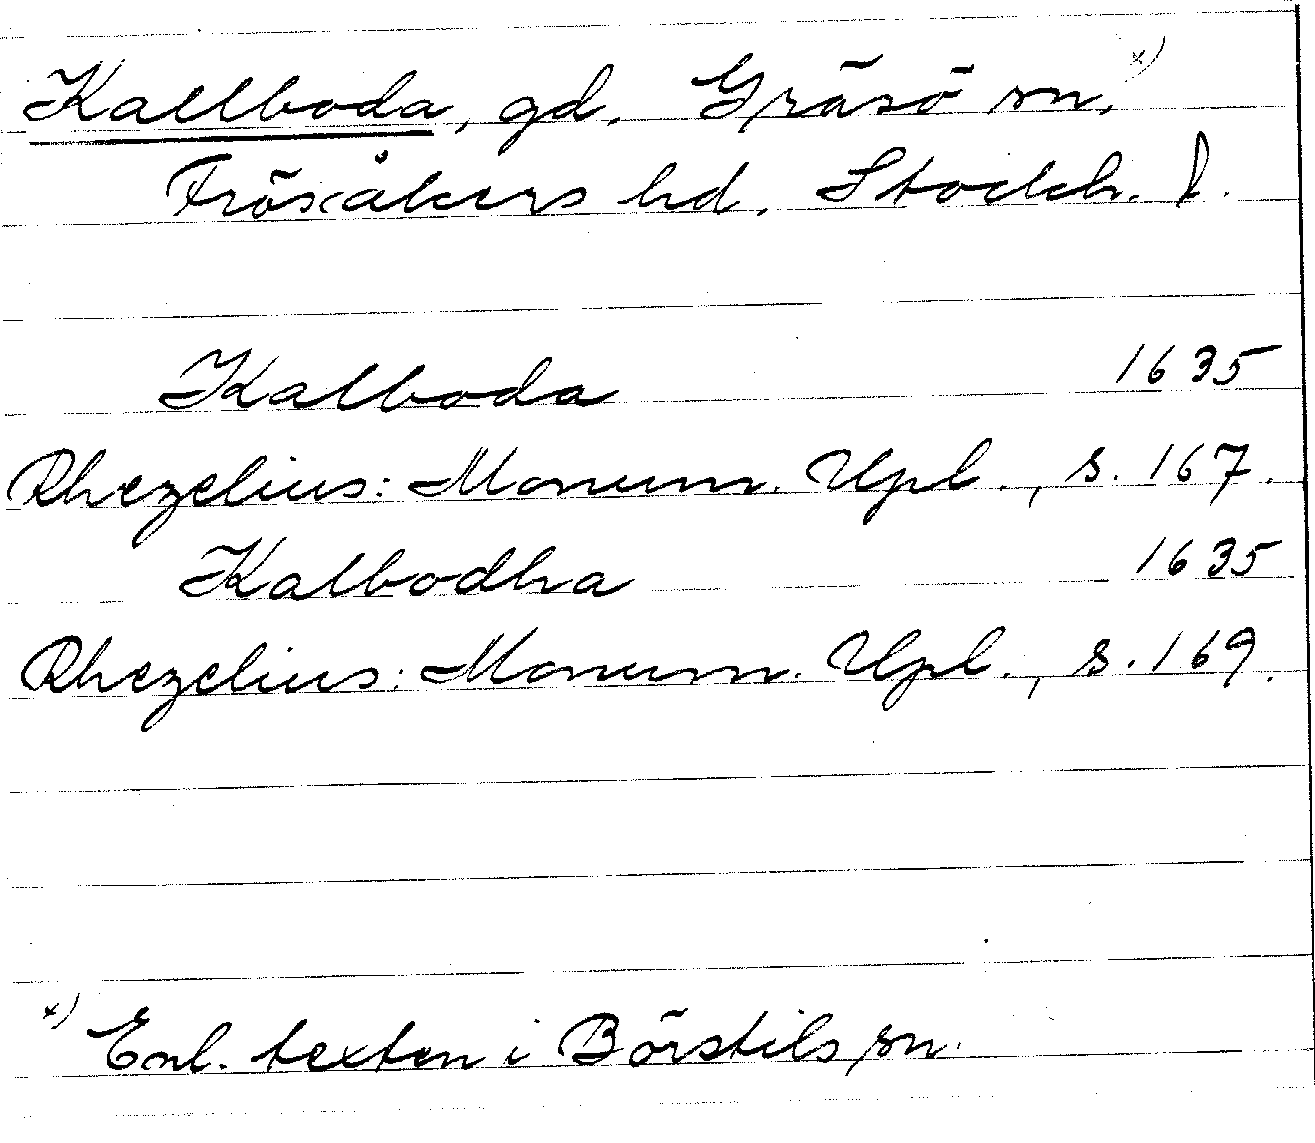 Kallboda, gd. Gräsö sn. x)
Frösåkers hd. Stockh. l.
Kalboda 1635
Rhezelius: Monum. Upl., s. 167.
Kalbodha 1635
Rhezelius: Monum. Upl., s. 169.
x) Enl. texten i Börstils sn.